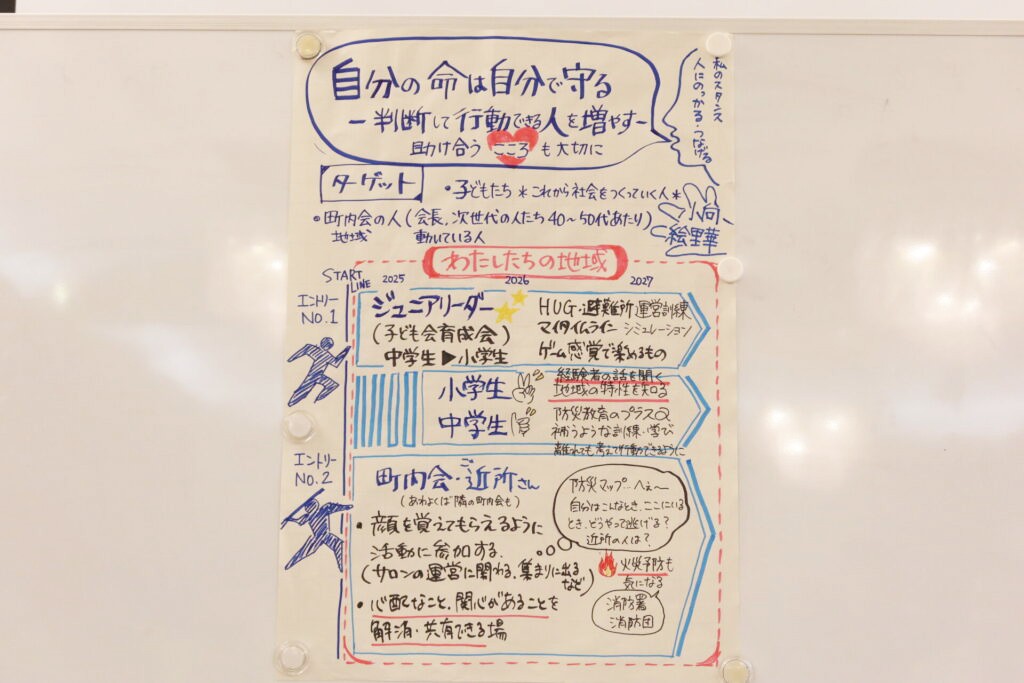 自分の命は自分で守る
－判断して行動できる人を増やす－
助け合うこころも大切に
私のスタンス
人にのっかる・つなげる
ターゲット
・子どもたち ＊これから社会をつくっていく人＊
・町内会の人(会長、次世代の人たち40～50代あたり)
地域 動いている人
小向
絵里華
わたしたちの地域
START LINE 2025 2026 2027
エントリー
NO.1
ジュニアリーダー
(子ども会育成会)
中学生▶小学生
HUG・避難所運営訓練
マイタイムライン シミュレーション
ゲーム感覚で楽めるもの
小学生
中学生
経験者の話を聞く
地域の特性を知る
防災教育のプラスα
補うような訓練・学び
離れても考えて行動ができるように
エントリー
NO.2
町内会・ご近所さん
(あわよくば隣の町内会も)
・顔を覚えてもらえるように
活動に参加する、
(サロンの運営に関わる、集まりに出るなど)
・心配なこと、関心があることを
解消・共有できる場
防災マップ…へぇ～
自分はこんなとき、ここにいる
とき、どうやって逃げる？
近所の人は？
火災予防も
気になる
消防署
消防団